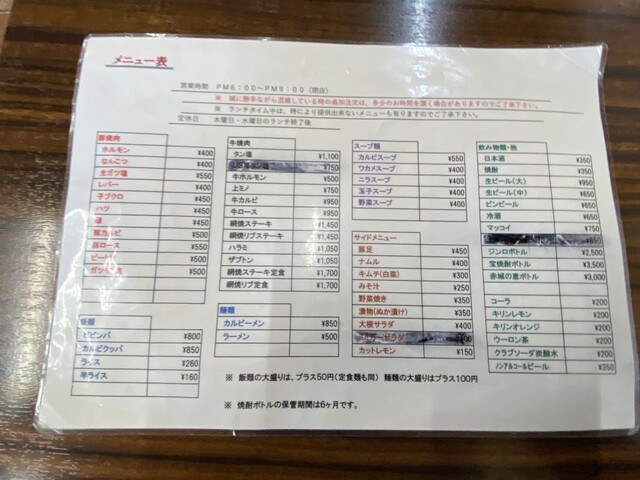 メニュー表
営業時間 PM6:00～PM9:00 (閉店)
※ 誠に勝手ながら混雑している時の追加注文は、多少のお時間を頂く場合がありますのでご了承下さい。
※ ランチタイム中は、時により提供出来ないメニューも有りますのでご了承下さい。
定休日 木曜日・水曜日のランチ終了後
豚焼肉
ホルモン ¥400
なんこつ ¥400
生ガツ塩 ¥550
レバー ¥400
子ブクロ ¥450
ハツ ¥450
塩 ¥450
豚カルビ ¥500
豚ロース ¥550
¥500
¥500
飯類
ビビンバ ¥800
カルビクッパ ¥850
ライス ¥260
半ライス ¥160
牛焼肉
タン塩 ¥1,100
¥750
牛ホルモン ¥500
上ミノ ¥750
牛カルビ ¥950
牛ロース ¥950
網焼ステーキ ¥1,450
網焼リブステーキ ¥1,450
ハラミ ¥1,050
ザブトン ¥1,000
網焼ステーキ定食 ¥1,700
網焼リブ定食 ¥1,700
麺類
カルビーメン ¥850
ラーメン ¥500
スープ類
カルビスープ ¥550
ワカメスープ ¥400
ニラスープ ¥400
玉子スープ ¥400
野菜スープ ¥400
サイドメニュー
豚足 ¥450
ナムル ¥400
キムチ(白菜) ¥300
みそ汁 ¥250
野菜焼き ¥350
漬物(ぬか漬け) ¥350
大根サラダ ¥400
カットレモン ¥150
飲み物類・他
日本酒 ¥350
焼酎 ¥350
生ビール(大) ¥950
生ビール(中) ¥650
ビンビール ¥650
冷酒 ¥650
マッコイ ¥750
ジンロボトル ¥2,500
宝焼酎ボトル ¥3,500
赤城の恵ボトル ¥3,000
コーラ ¥200
キリンレモン ¥200
キリンオレンジ ¥200
ウーロン茶 ¥200
クラブソーダ炭酸水 ¥200
ノンアルコールビール ¥350
※ 飯類の大盛りは、プラス50円(定食類も同) 麺類の大盛りはプラス100円
※ 焼酎ボトルの保管期間は6ヶ月です。